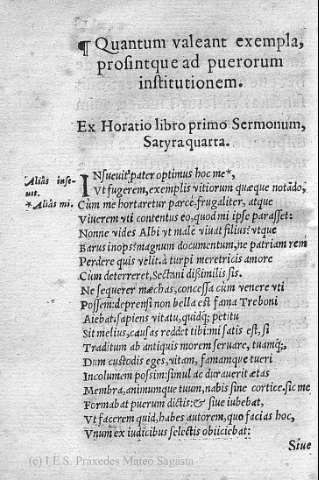 ¶ Quantum valeant exempla,
prosintque ad puerorum
institutionem.
Ex Horatio libro primo Sermonum,
Satyra quarta.
Aliâs inse-
uit.
*Aliâs mi.
INsueuit pater optimus hoc me*,
Vt fugerem, exemplis vitiorum quæque notādo,
Cùm me hortaretur parcè, frugaliter, atque
Viuerem vti contentus eo, quod mi ipse parasset:
Nonne vides Albi vt malè viuat filius? vtque
Barus inops? magnum documentum, ne patriam rem
Perdere quis velit. à turpi meretricis amore
Cùm deterreret, Sectani dißimilis sis.
Ne sequerer mæchas, concessa cùm venere vti
Possem: deprensi non bella est fama Treboni
Aiebat. sapiens vitatu, quidq; petitu
Sit melius, causas reddet tibi: mi satis est, si
Traditum ab antiquis morem seruare, tuamq;,
Dum custodis eges, vitam, famamque tueri
Incolumem possim: simul ac durauerit ætas
Membra, animumque tuum, nabis sine cortice. sic me
Formabat puerum dictis: & siue iubebat,
Vt facerem quid, habes autorem, quo facias hoc,
Vnum ex iudicibus selectis obiiciebat:
Siue
(c) I.E.S. Praxedes Mateo Sagasta